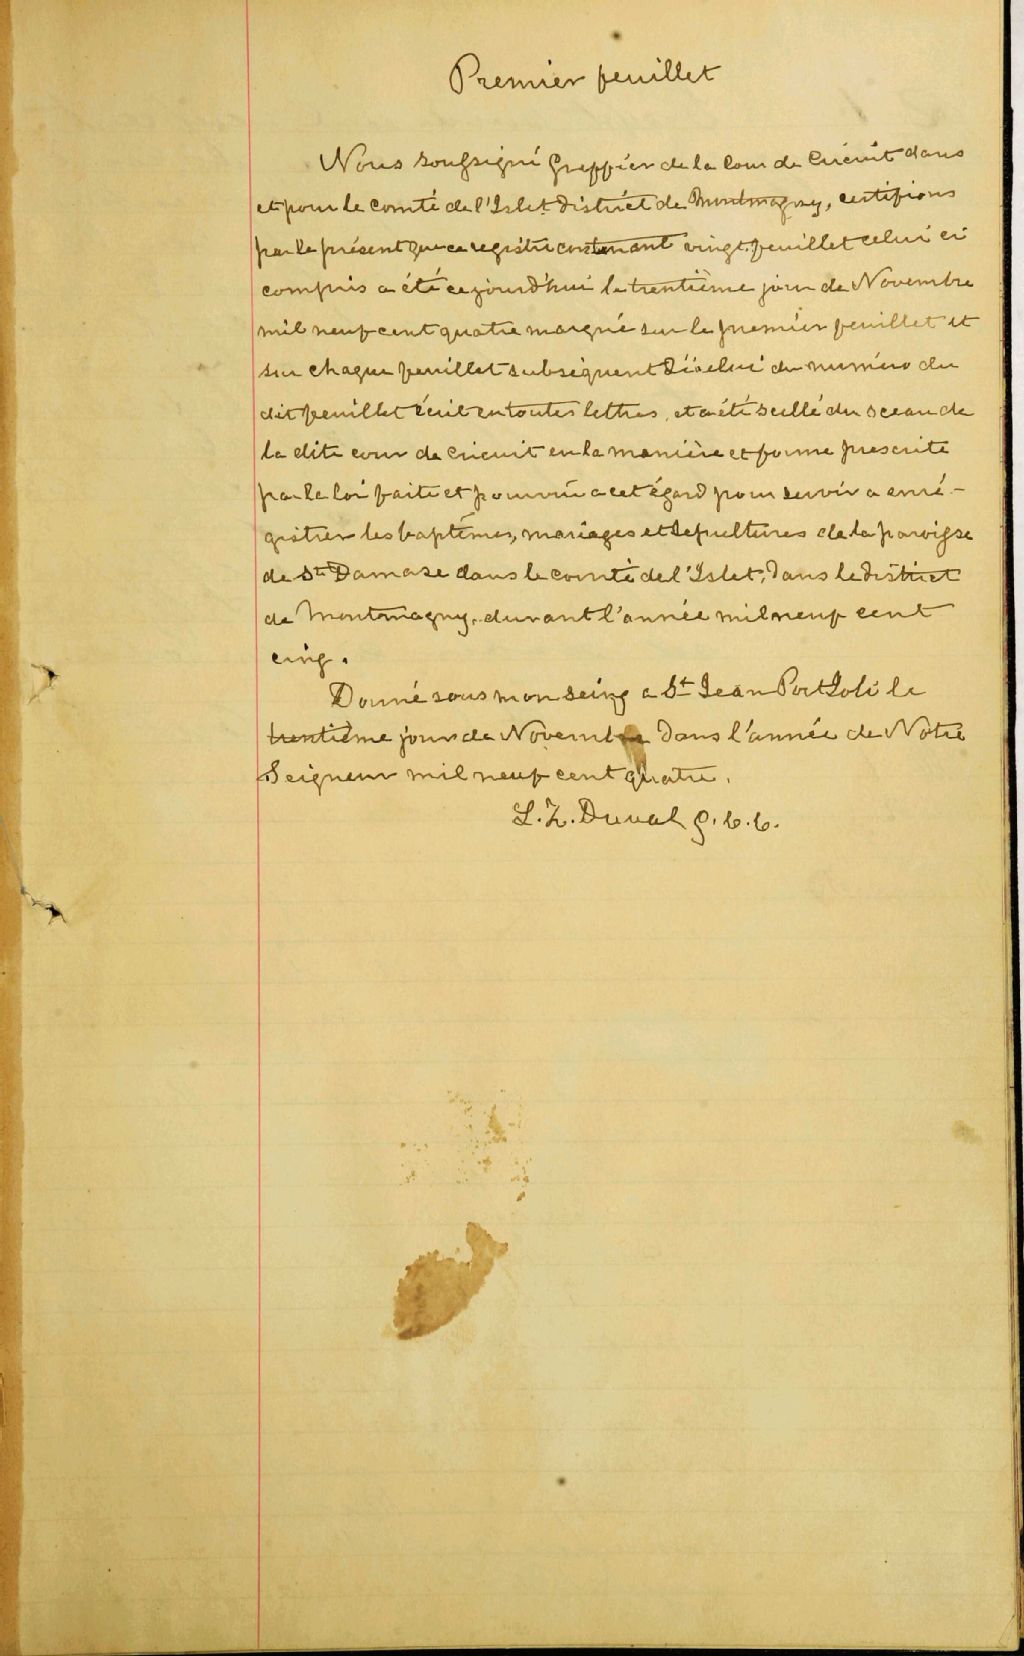 Premier feuillet
Nous soussigné Greffier de la Cour de Circuit dans
et pour le comté de l'Islet district de Montmagny, certifions
par le présent que ce registre contenant vingt feuillet celui ci
compris a été ce jourd'hui le trentième jour de Novembre
mil neuf cent quatre marqué sur le premier feuillet et
sur chaque feuillet subséquent d'icelui du numéro du
dit feuillet écrit en toutes lettres, et a été scellé du sceau de
la dite cour de circuit en la manière et forme prescrite
par la loi faite et pourvue a cet égard pour servir a enré-
gistrer les baptêmes, mariages et sepultures de la paroisse
de St Damase dans le comté de l'Islet, dans le district
de Montmagny, durant l'année mil neuf cent
cinq.
Donné sous mon seing a St Jean Port Joli le
trentième jour de Novembre dans l'année de Notre
Seigneur mil neuf cent quatre.
L. Z. Duval G. C. C.